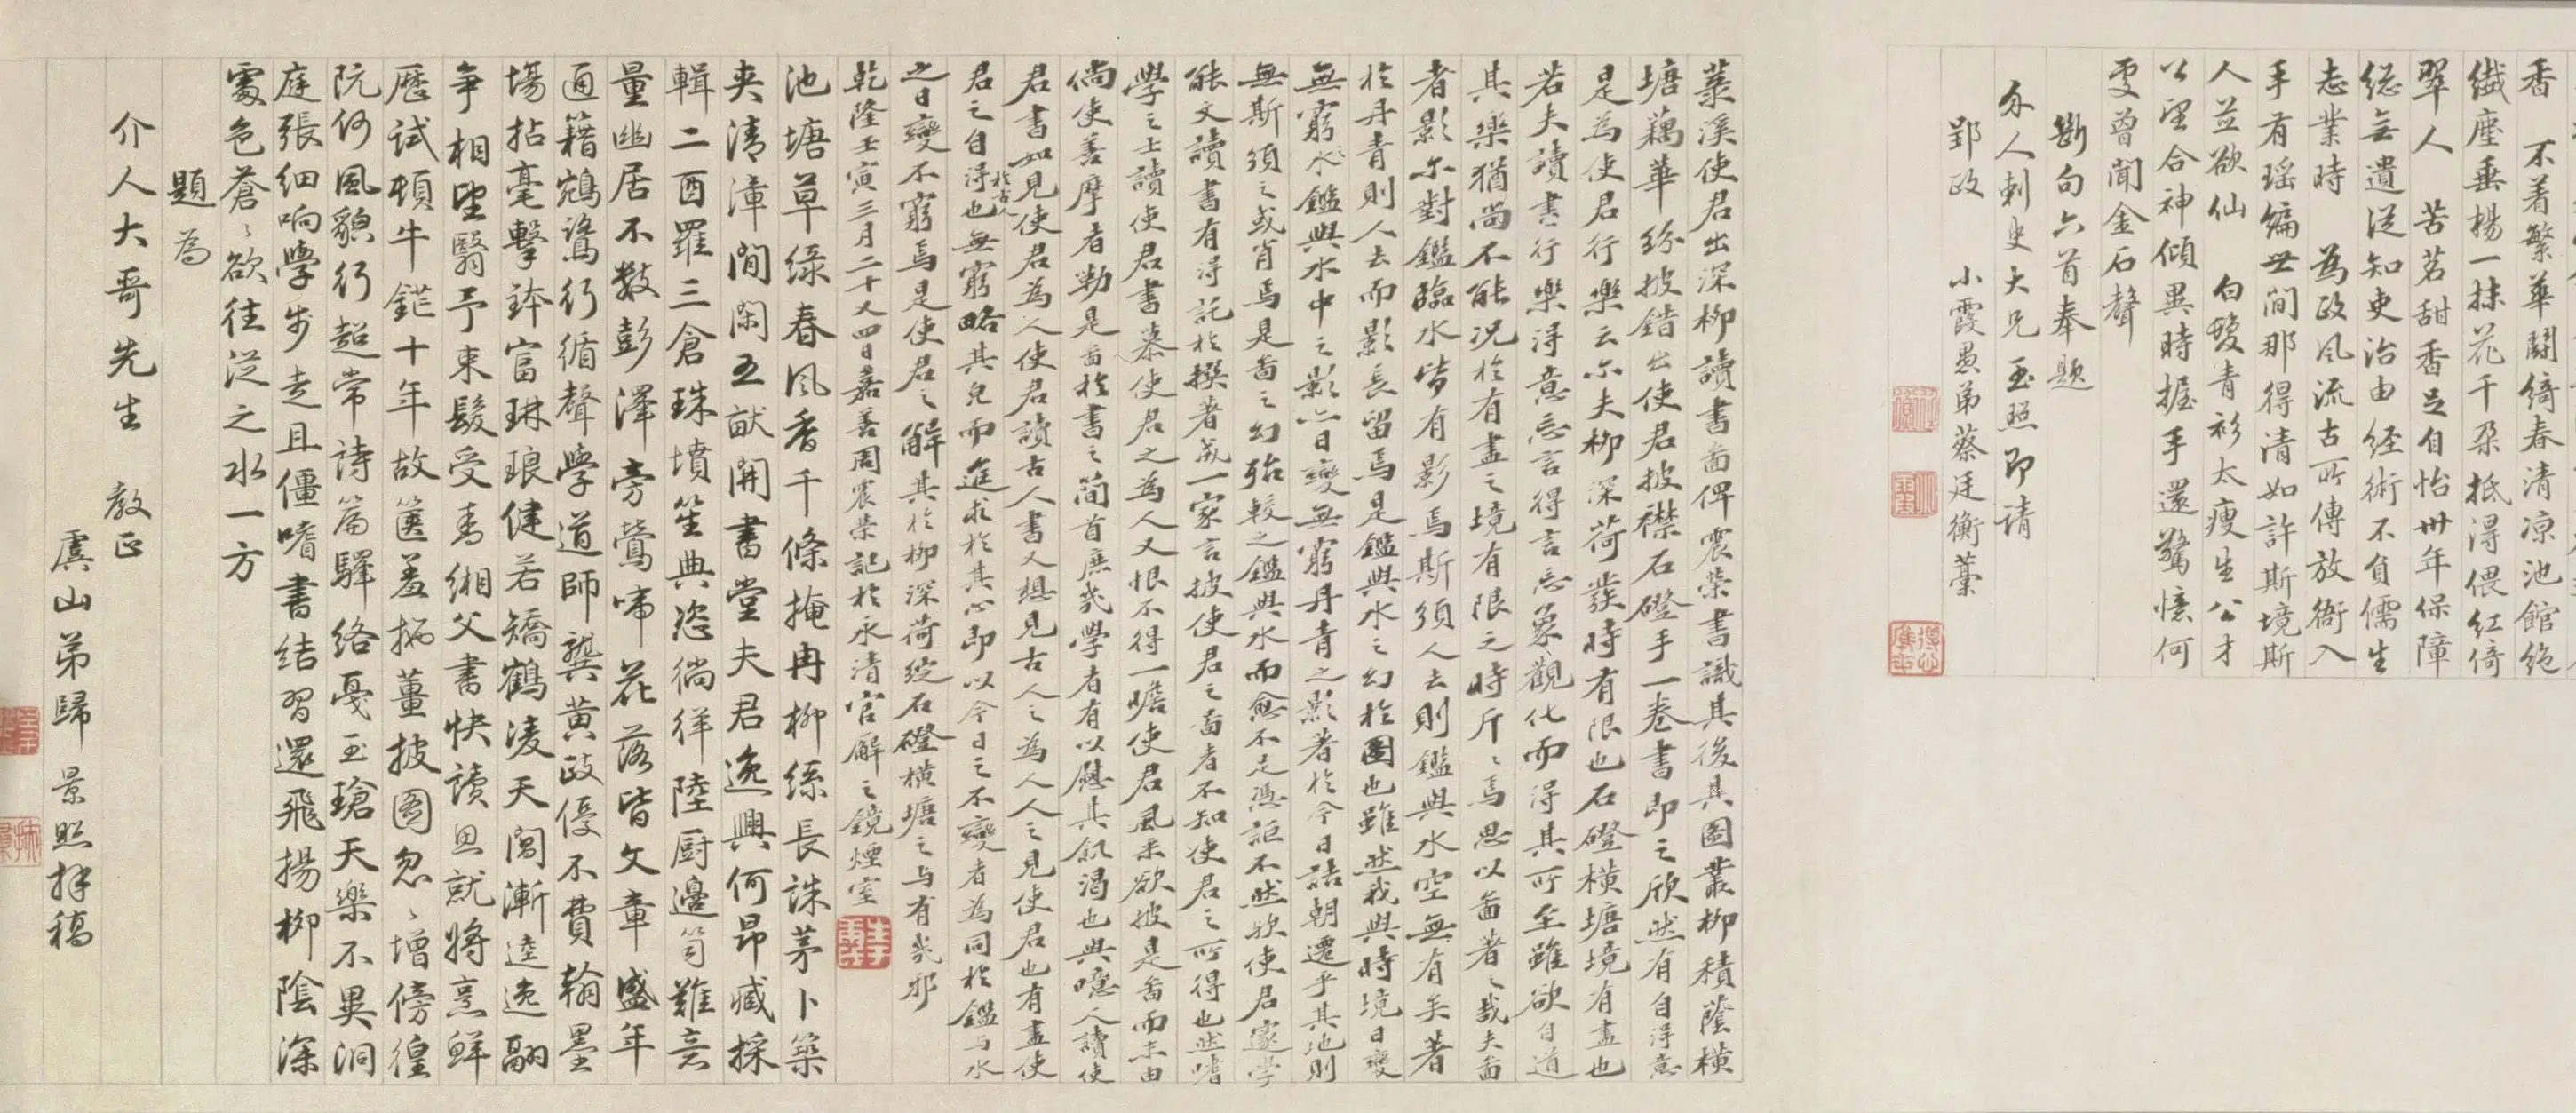 香 不着繁華鬪綺春清凉池館絶
纎塵垂楊一抹花千朶抵得偎紅倚
翠人 苦茗甜香足自怡卅年保障
總無遺從知吏治由經術不負儒生
志業時 為政風流古所傳放衙入
手有瑶編世間那得清如許斯境斯
人並欲仙 白蛟青衫太瘦生公才
公望合神傾異時握手還驚憶何
處曾聞金石聲
斷句六首奉題
介人刺史大兄玉照即请
郢政 小霞愚弟蔡廷衡藁
葉溪使君出深柳讀書啚俾震榮書識其後其圖叢柳積蔭橫
塘藕華紛披錯出使君披襟石磴手一卷書即之欣然有自得意
是為使君行樂云尔夫柳深荷發時有限也石磴橫塘境有盡也
若夫讀書行樂得意忘言得言忘象觀化而得其所至雖欲自道
其樂猶尚不能况於有盡之境有限之時斤〻焉思以啚著之哉夫啚
者影尔對鑑臨水皆有影焉斯須人去則鑑與水空無有矣著
於丹青則人去而影長留焉是鑑與水之幻於圖也雖然我與時境日變
無窮水鑑與水中之影亦日變無窮丹青之影著於今日詰朝遷乎其地則
無斯須之或肖焉是啚之幻殆較之鑑與水而愈不足憑詎不然歟使君邃學
能文讀書有得託於撰著成一家言披使君之啚者不知使君之所得也然嗜
學之士讀使君書慕使君之為人又恨不得一瞻使君風采欲披是啚而末由
倘使善摩者勒是啚於書之簡首庶幾學者有以慰其飢渴也與噫人讀使
君書如見使君為人使君讀古人書又想見古人之為人人之見使君也有盡使
君之自得於古人也無窮略其皃而進求於其心即以今日之不變者為同於鑑与水
之日變不窮焉是使君之解其於柳深荷綻石磴橫塘之与有幾邪
乾隆壬寅三月二十又四日嘉善周震榮記於永清官廨之鏡煙室
池塘草緑春風香千條掩冉柳絲長誅茅卜築
夾清漳間闲五畝開書堂夫君逸興何昂臧採
輯二酉羅三倉珠墳笙典恣徜徉陸厨邊笥難竞
量幽居不數彭澤旁鶯啼花落皆文章盛年
通籍鵷鷺行循聲學道師龔黄政優不費翰墨
場拈毫擊鉢富琳琅健若矯鶴凌天閶漸逵逸翮
争相望翳予束髮受青缃父書快讀思就将烹鮮
歷試頓牛鋩十年故篋羞摛董披图忽〻增傍徨
阮何風貌行超常詩篇驛络戛玉瑲天樂不異洞
庭張细响學步走且僵嗜書结習還飛揚柳陰深
處色蒼〻欲往從之水一方
題為
介人大哥先生 教正
虞山弟歸 景照拜稿